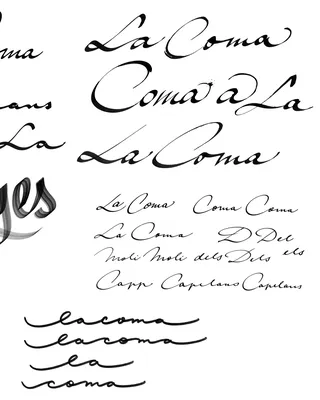 La Coma
oma
Coma a La
ans
La
La Coma
yes
La Coma Coma Coma
La Coma D Del
Moli Moli dels Dels els
Capp Capellans Capellans
lacoma
lacoma
la
coma